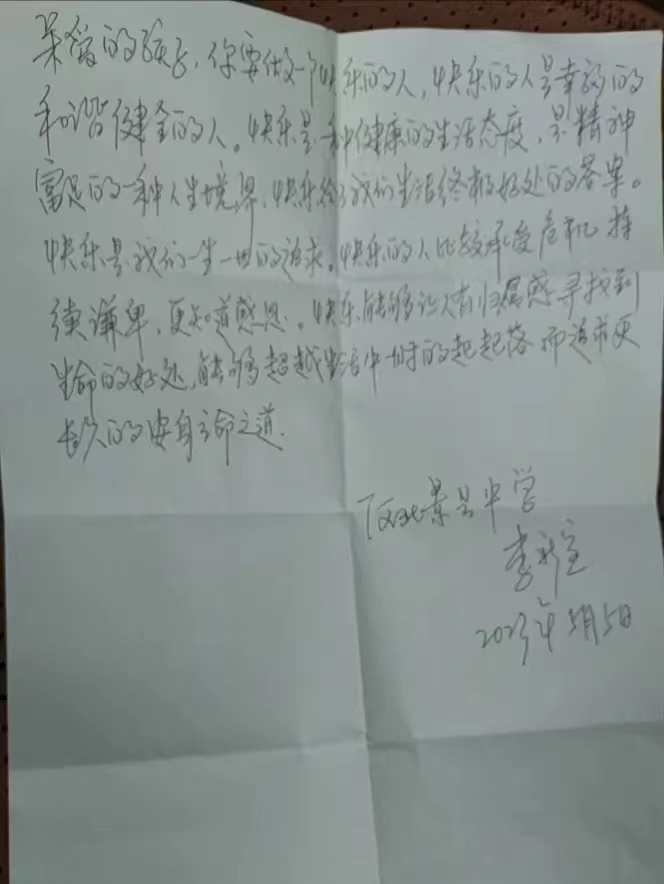 亲爱的孩子，你要做一个快乐的人，快乐的人是幸福的
和谐健全的人。快乐是一种健康的生活态度，是精神
富足的一种人生境界，快乐给了我们生活终极好处的答案。
快乐是我们一生一世的追求。快乐的人比较承受危机，持
续谦卑，更知道感恩。快乐能够让人有归属感寻找到
生命的好处，能够超越生活中一时的起起落落而追求更
长久的安身立命之道.
河北景县中学
李新
2023年5月5日